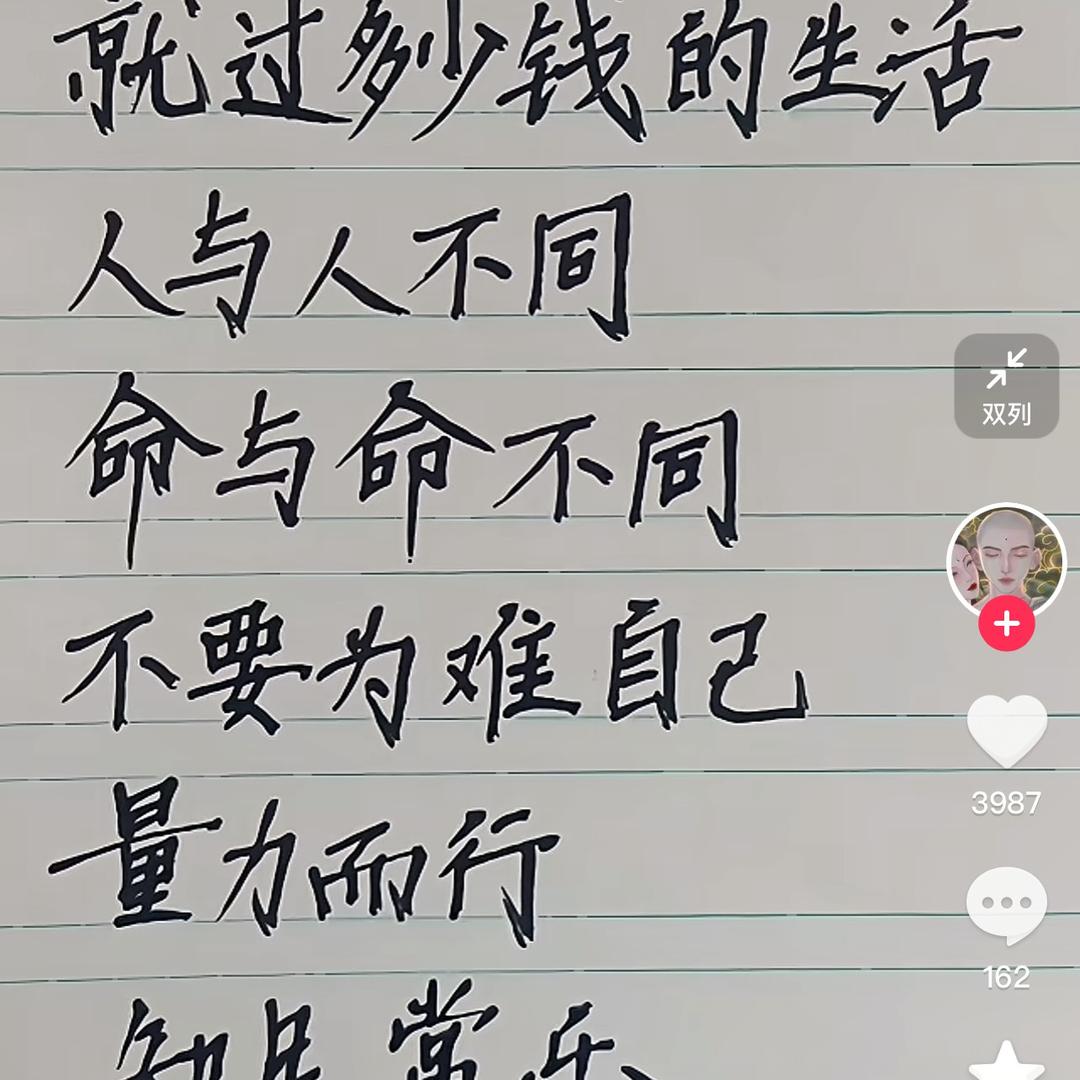 就过多少钱的生活
人与人不同
命与命不同
双列
不要为难自己
3987
量力而行
162
知足常乐